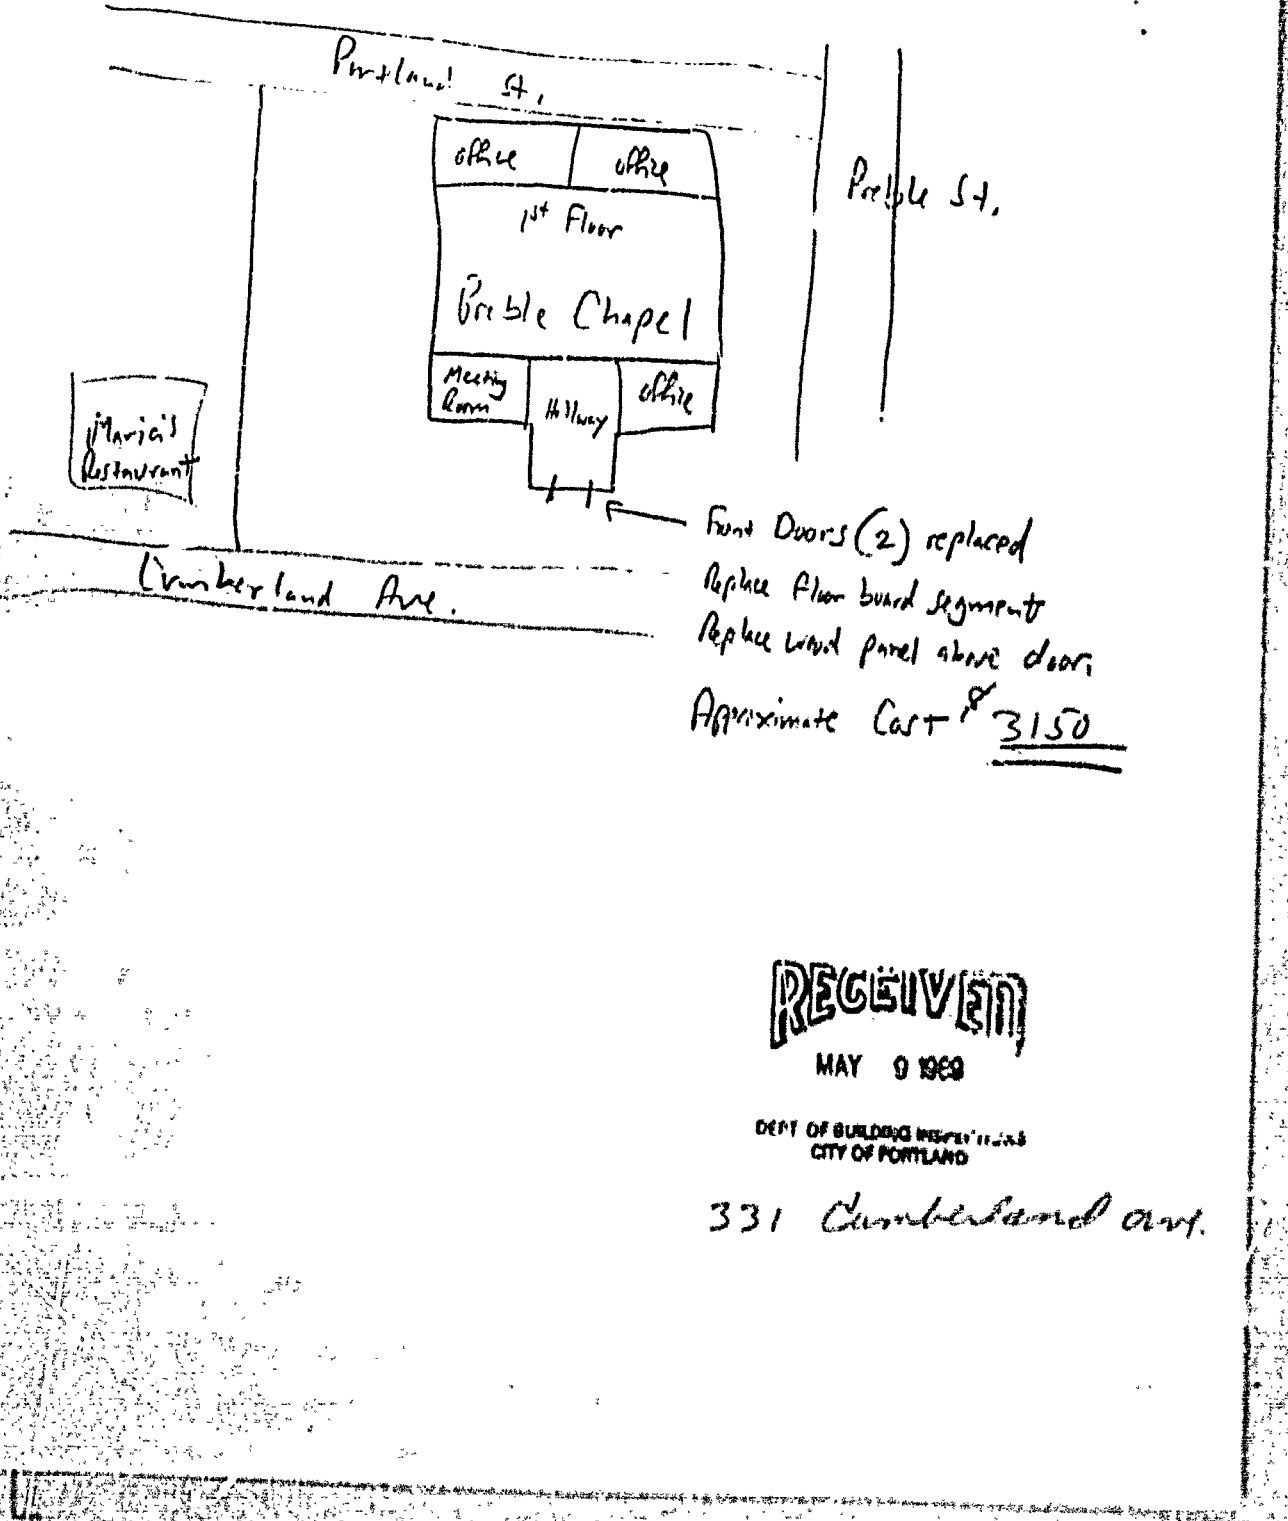 Portland St.
office
office
Preble St.
1st Floor
Preble Chapel
Meeting
Room
Hallway
office
Maria's
Restaurant
Front Doors (2) replaced
Replace floor board segments
Replace wood panel above door
Cumberland Ave.
Approximate Cost $ 3150
RECEIVED
MAY 9 1989
DEPT OF BUILDING INSPECTIONS
CITY OF PORTLAND
331 Cumberland ave.